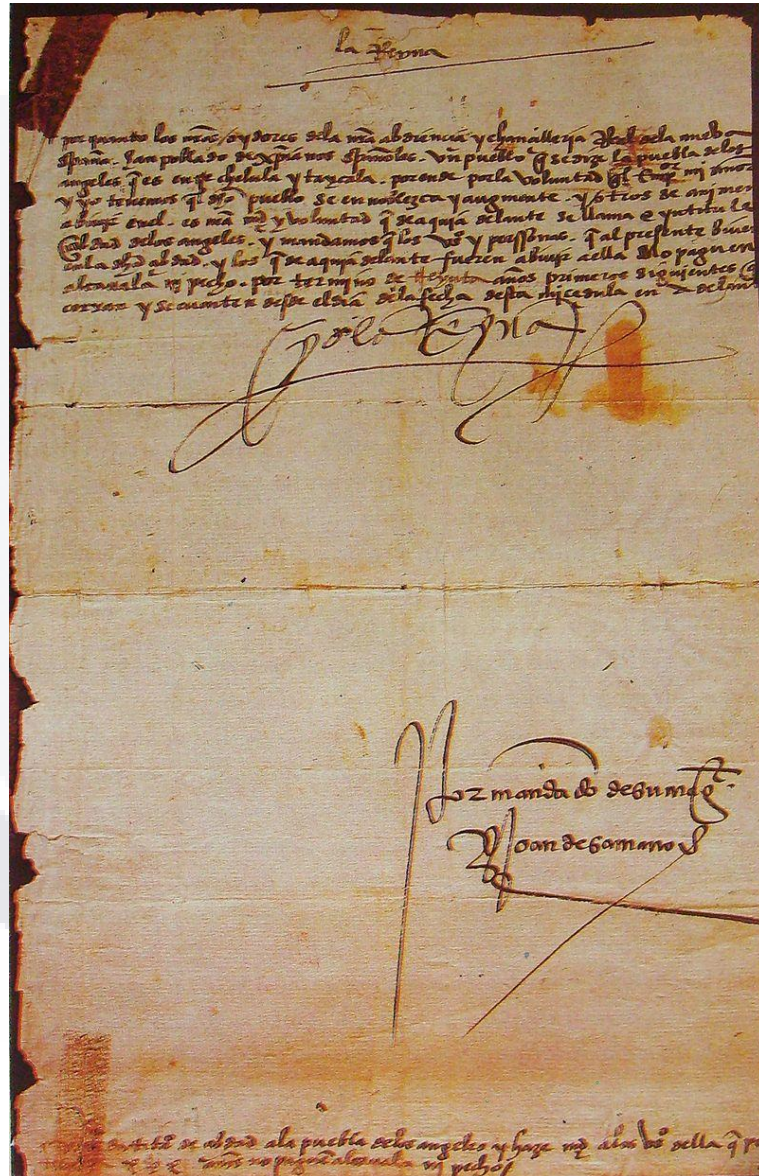 la Reyna
por quanto los nros oydores dela nra abdiencia y chancilleria Real dela nueva
españa. han poblado de xpianos españoles. Un pueblo q se dize la puebla delos
angeles q es entre cholula y tascala. por ende por la voluntad q el Emp^or mi señor
y yo tenemos q dho pueblo se ennoblezca y augmente. y otros se animen
a bivir en el. es mi md y voluntad q de aqui adelante se llame e yntitule
cibdad delos angeles. y mandamos q los v^os y personas. q al presente biven
en la dha cibdad. y los q de aqui adelante fueren a bivir a ella no paguen
alcavala ni pecho. por termino de treynta años primeros siguientes q
corran y se cuenten desde el dia dela fecha desta mi cedula en adelante
yo la Reyna
por mandado de su mag^t.
Joan de samano
de cibdad ala puebla delos angeles y haze md alos v^os della q
xxx años no paguen alcavala ni pecho